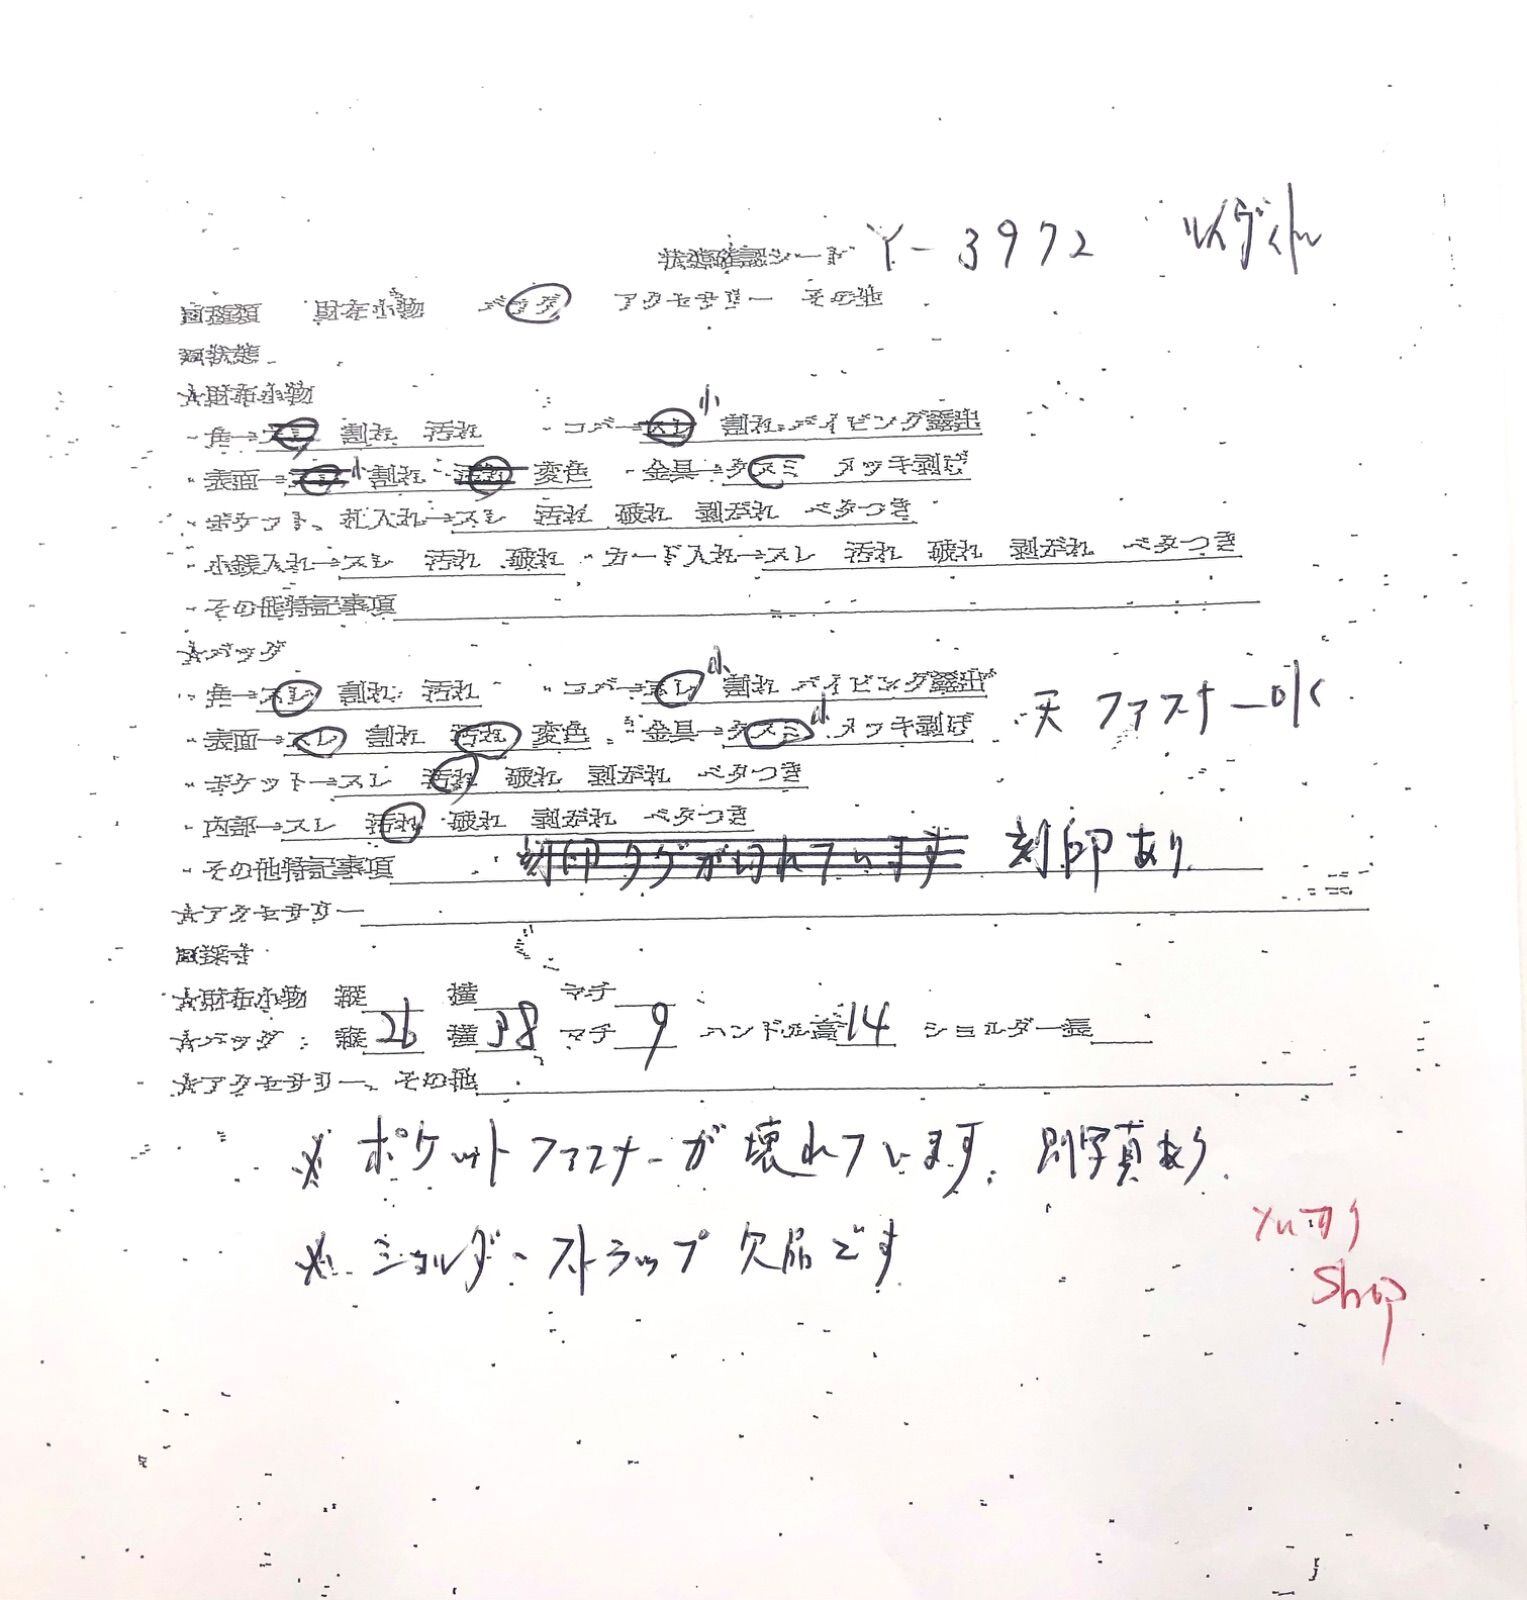 状態確認シート Y-3972 ルイヴィトン
■種類 財布小物 バッグ アクセサリー その他
■状態
☆財布小物
・角→スレ 割れ 汚れ ・コバ→スレ小 割れ パイピング露出
・表面→スレ小 割れ 汚れ 変色 ・金具→クスミ メッキ剥げ
・ポケット、札入れ→スレ 汚れ 破れ 剥がれ ベタつき
・小銭入れ→スレ 汚れ 破れ ・カード入れ→スレ 汚れ 破れ 剥がれ ベタつき
・その他特記事項
☆バッグ
・角→スレ 割れ 汚れ ・コバ→スレ小 割れ パイピング露出
・表面→スレ 割れ 汚れ 変色 ・金具→クスミ小 メッキ剥げ 天ファスナー
・ポケット→スレ 汚れ 破れ 剥がれ ベタつき
・内部→スレ 汚れ 破れ 剥がれ ベタつき
・その他特記事項 刻印タグが切れています 刻印あり
☆アクセサリー
■採寸
☆財布小物 縦 横 マチ
☆バッグ:縦26 横38 マチ9 ハンドル高14 ショルダー長
☆アクセサリー、その他
※ポケットファスナーが壊れています。別写真あり.
※ショルダーストラップ欠品です
Shop